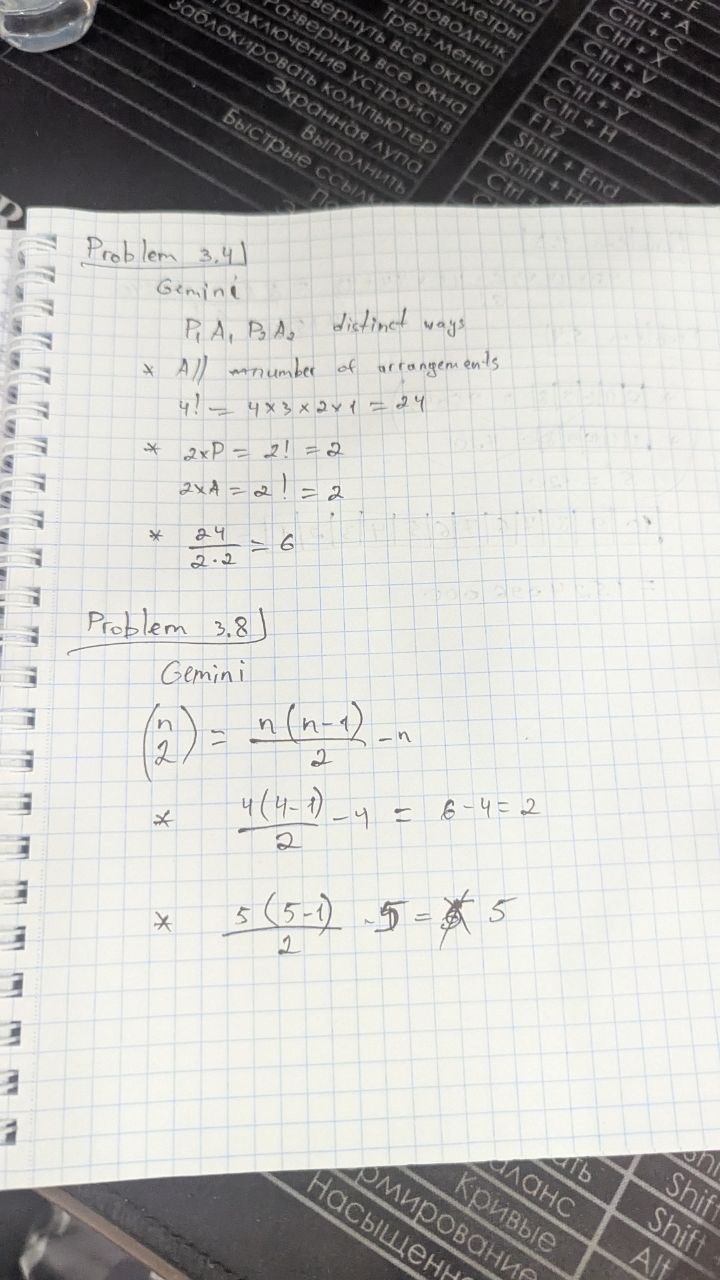 аметры
Проводник
Трей меню
звернуть все окна
Развернуть все окна
Подключение устройств
Заблокировать компьютер
Экранная лупа
Выполнить
Быстрые ссыл
Ctrl + A
Ctrl + C
Ctrl + X
Ctrl + V
Ctrl + P
Ctrl + Y
Ctrl + H
F12
Shift + End
Shift + Ho
Ctrl +
Problem 3.4
Gemini
P₁ A₁ P₂ A₂ distinct ways
* All number of arrangements
4! = 4×3×2×1 = 24
* 2×P = 2! = 2
2×A = 2! = 2
* 24/(2·2) = 6
Problem 3.8
Gemini
(n 2) = n(n-1)/2 - n
* 4(4-1)/2 - 4 = 6-4=2
* 5(5-1)/2 - 5 = 5
ать
аланс
Кривые
рмирование
Насыщенн
Shift
Shift
Alt